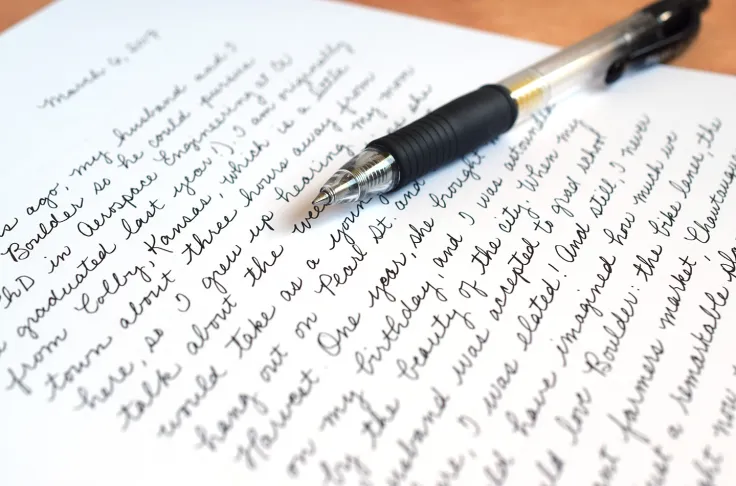 March 6,
s ago, my husband and I
Boulder so he could pursue
PhD in Aerospace Engineering at CU
graduated last year!). I am originally
from Colby, Kansas, which is a little
town about three hours away from
here, so I grew up hearing my mom
talk about the
would take as a young
hang out on Pearl St. and
Harvest. One year, she brought
on my birthday, and I was astounded
by the beauty of the city. When my
usband was accepted to grad school
re, I was elated! And still, I never
ld have imagined how much we
ld love Boulder: the bike lanes, the
nt farmers market, Chautauqua
ust a remarkable pla
ght now